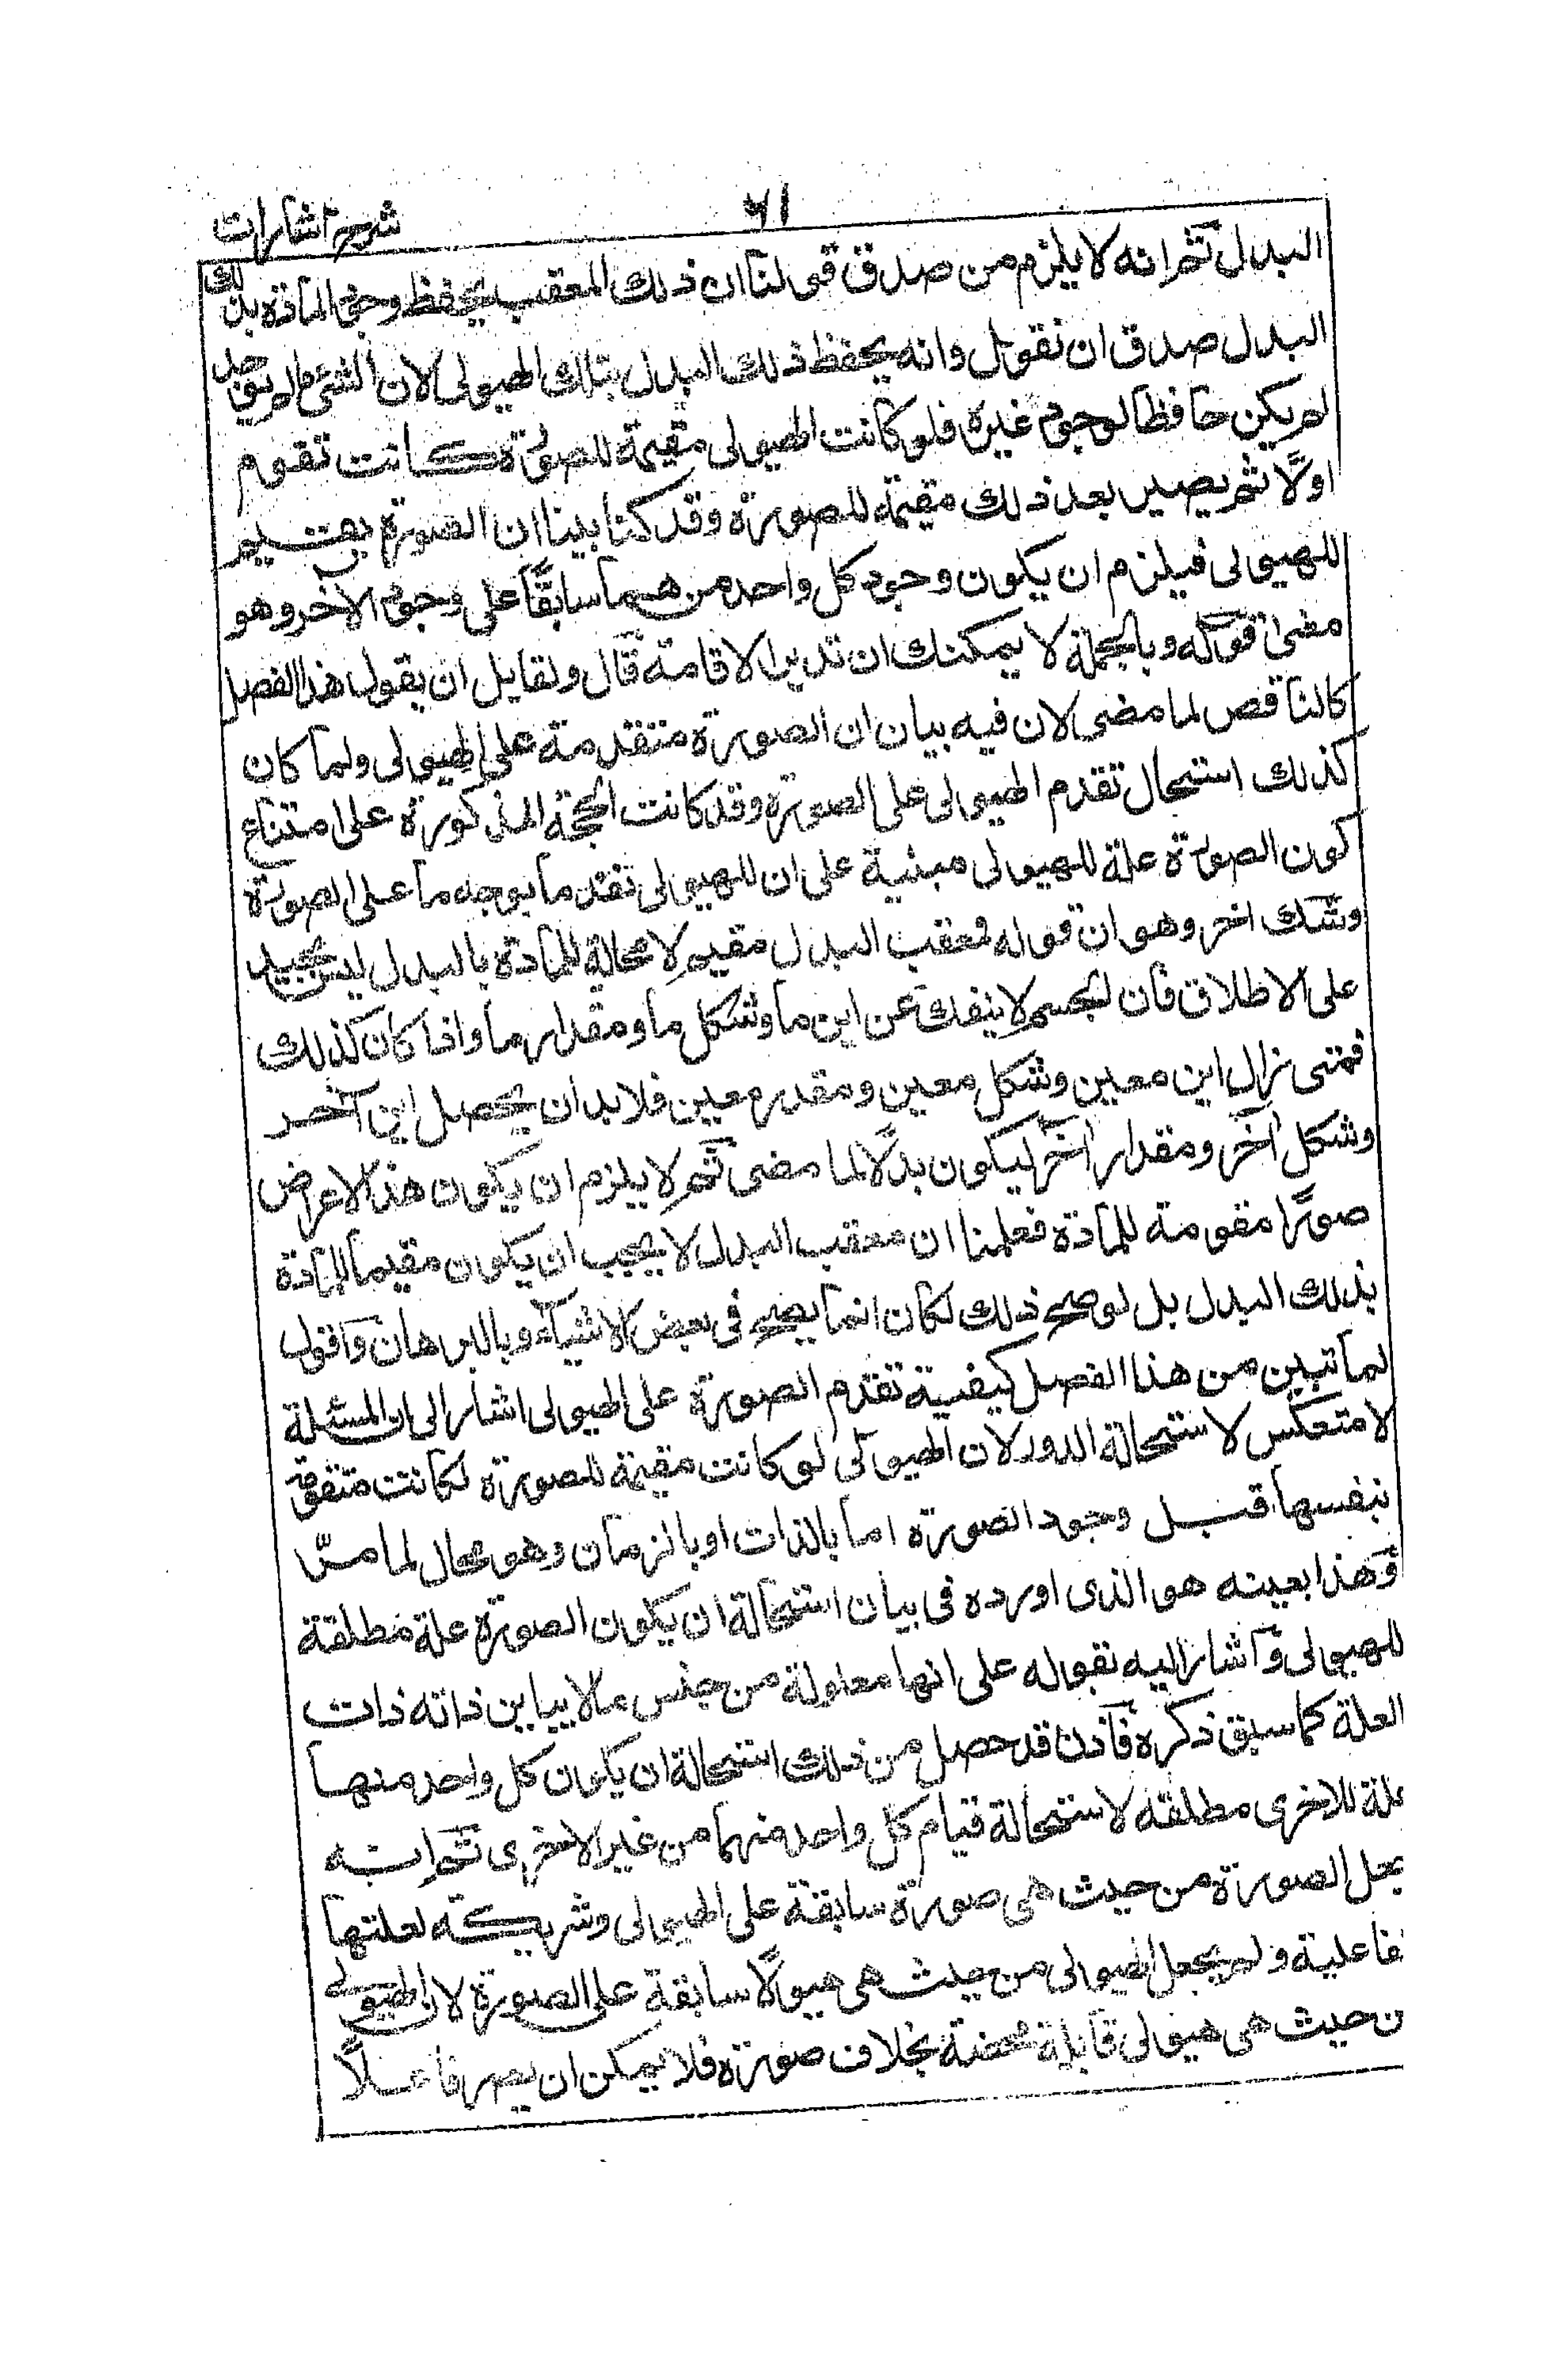 شرح اشارات
٦١
البدل ثم انه لا يلزم من صدق قولنا ان ذلك المعقب يحفظ وجود المادة بذلك
البدل صدق ان نقول وانه يحفظ ذلك البدل بتلك الهيولى لان الشئ ما لم يوجد
لم يكن حافظا لوجود غيره فلو كانت الهيولى مقيمة للصورة كانت تقوم
اولا ثم يصير بعد ذلك مقيمة للصورة وقد كنا بينا ان الصورة يقيم
للهيولى فيلزم ان يكون وجود كل واحد من هما سابقا على وجود الآخر وهو
معنى قوله وبالجملة لا يمكنك ان تدير الاقامة قال ولقايل ان يقول هذا الفصل
كالناقص لما مضى لان فيه بيان ان الصورة متقدمة على الهيولى ولما كان
كذلك استحال تقدم الهيولى على الصورة وقد كانت الحجة المذكورة على امتناع
كون الصورة علة للهيولى مبنية على ان للهيولى تقدما بوجه ما على الصورة
وشك اخر وهو ان قوله فمعقب البدل مقيم لا محالة للمادة بالبدل ليس بجيد
على الاطلاق فان الجسم لا ينفك عن اين ما وشكل ما ومقدار ما واذا كان كذلك
فمتى زال اين معين وشكل معين ومقدر معين فلا بد ان يحصل اين آخر
وشكل آخر ومقدار آخر ليكون بدلا لما مضى ثم لا يلزم ان يكون هذا الاعراض
صورا مقومة للمادة فعلمنا ان معقب البدل لا يجب ان يكون مقيما للمادة
بذلك البدل بل لو صح ذلك لكان انما يصح فى بعض الاشياء وبالبرهان واقول
لما تبين من هذا الفصل كيفية تقدم الصورة على الهيولى اشار الى ان المسئلة
لا متعكس لاستحالة الدور لان الهيولى لو كانت مقيمة للصورة لكانت متقومة
بنفسها قبل وجود الصورة اما بالذات او بالزمان وهو محال لما مر
وهذا بعينه هو الذى اورده فى بيان استحالة ان يكون الصورة علة مطلقة
للهيولى وآشار اليه بقوله على انها معلولة من جنس ما لا يباين ذاته ذات
العلة كما سبق ذكره فاذن قد حصل من ذلك استحالة ان يكون كل واحد منها
علة للاخرى مطلقة لاستحالة قيام كل واحد منهما من غير الاخرى ثم انه
يجعل الصورة من حيث هى صورة سابقة على الهيولى وشريكة لعلتها
لفاعلية ولم يجعل الهيولى من حيث هى هيولا سابقة على الصورة لان الهيولى
من حيث هى هيولى قابلة محضة بخلاف صورة فلا يمكن ان يصير فاعلا